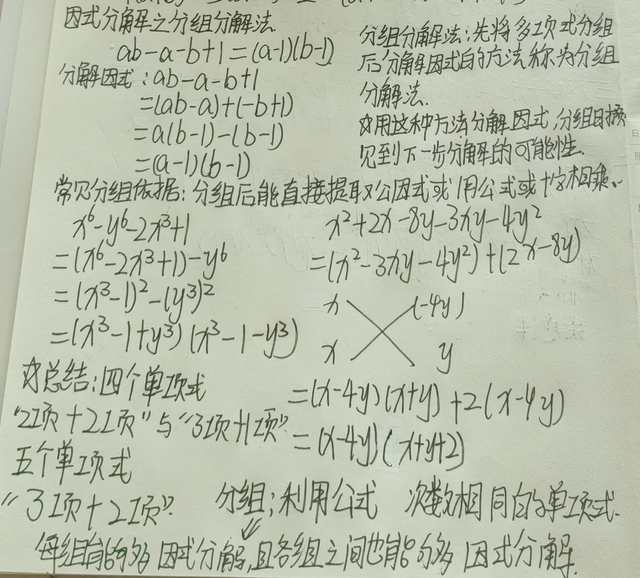 因式分解之分组分解法
ab-a-b+1=(a-1)(b-1)
分解因式:ab-a-b+1
=(ab-a)+(-b+1)
=a(b-1)-(b-1)
=(a-1)(b-1)
分组分解法:先将多项式分组
后分解因式的方法称为分组
分解法.
☆用这种方法分解因式,分组时预
见到下一步分解的可能性.
常见分组依据:分组后能直接提取公因式或用公式或十字相乘.
x⁶-y⁶-2x³+1
=(x⁶-2x³+1)-y⁶
=(x³-1)²-(y³)²
=(x³-1+y³)(x³-1-y³)
x²+2x-8y-3xy-4y²
=(x²-3xy-4y²)+(2x-8y)
x (-4y)
x y
=(x-4y)(x+y)+2(x-4y)
=(x-4y)(x+y+2)
☆总结:四个单项式
"2项+2项"与"3项+1项"
五个单项式
"3项+2项"
分组:利用公式 次数相同的单项式.
每组有能够因式分解,且各组之间也能够因式分解.